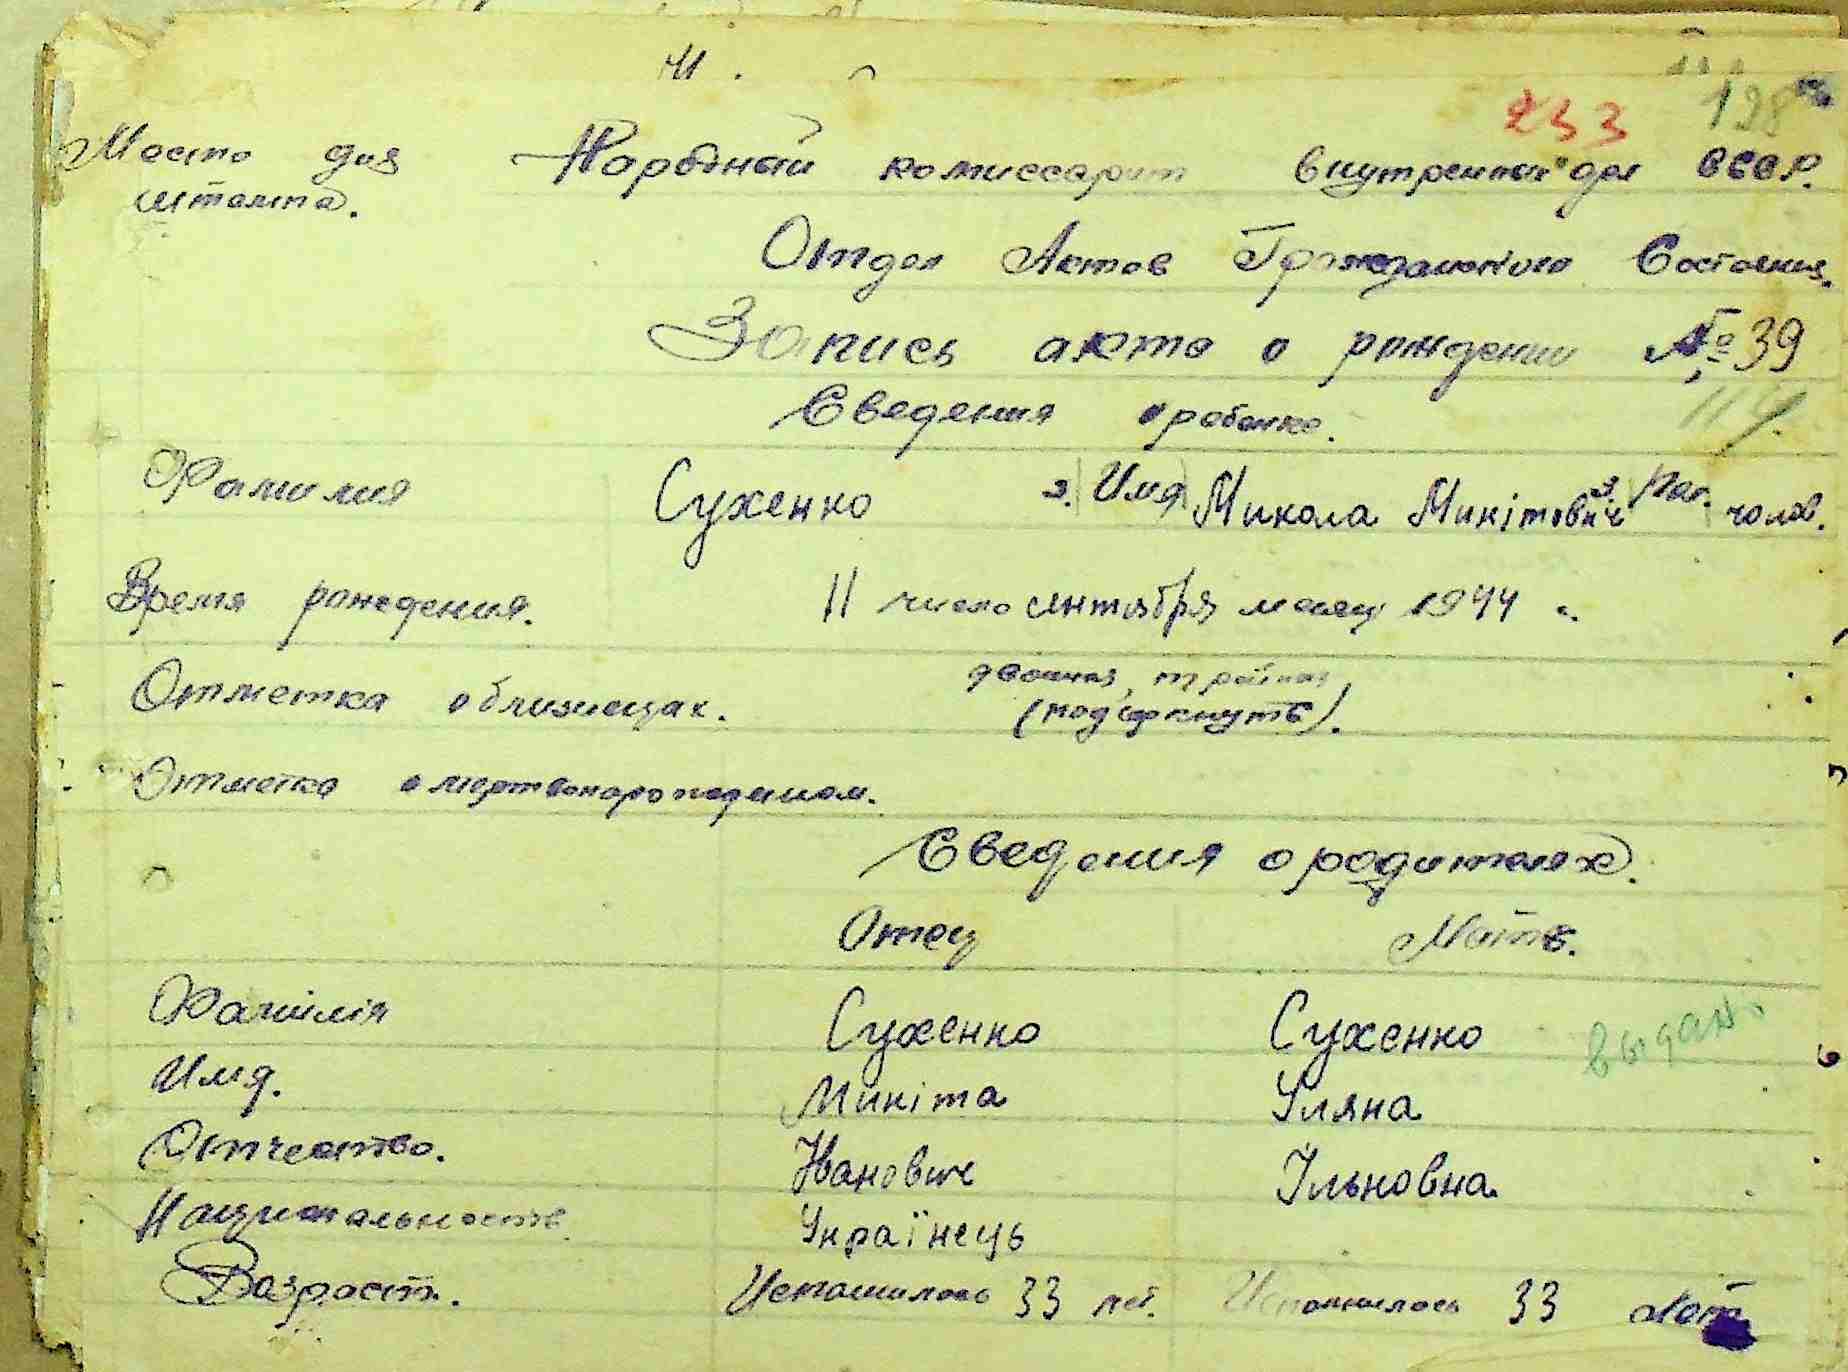 И.
233 128
Место для Нарбоный комиссариат внутренных дел СССР.
штампа.
Отдел Актов Гражданского Состояния.
Запись акта о рождении № 39
Сведения о ребенке. 114.
Фамилия Сухенко 2. Имя Микола Микітович 3. Пол. чолов.
Время рождения. 11 число сентября месяц 1944 г.
Отметка о близнецах. двойная, тройная
(подчркнуть).
Отметка о мертвонарожденом.
Сведения о родителях.
Отец Мать.
Фамілія Сухенко Сухенко выдан.
Имя. Микіта Уляна
Отчество. Иванович Ільновна.
Национальность. Українець
Возраст. Исполнилось 33 лет. Исполнилось 33 лет